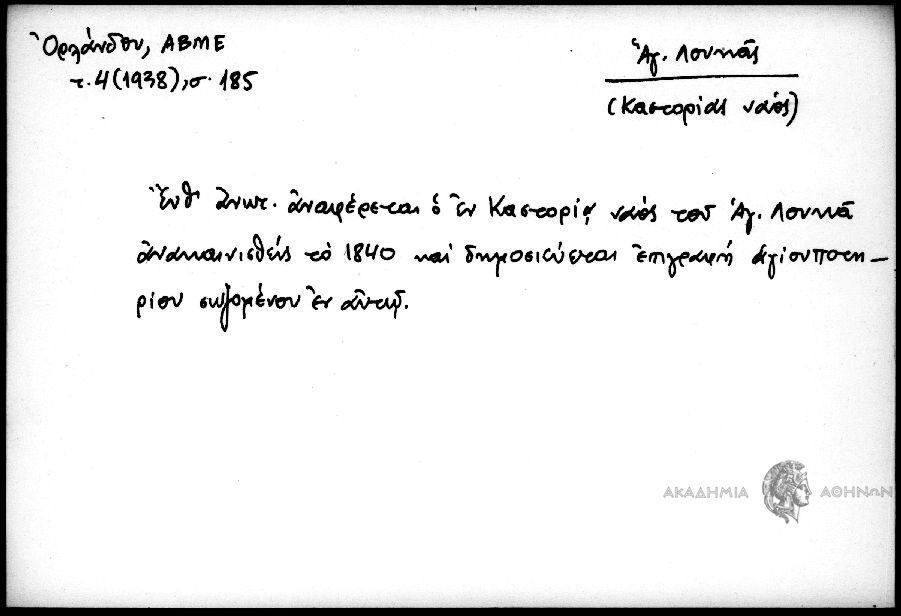 Ὀρλάνδου, ΑΒΜΕ
τ. 4 (1938), σ. 185
Ἁγ. Λουκᾶς
(Καστορίας ναός)
Ἔνθ' ἀνωτ. ἀναφέρεται ὁ ἐν Καστορίᾳ ναός τοῦ Ἁγ. Λουκᾶ
ἀνακαινισθείς τὸ 1840 καί δημοσιεύεται ἐπιγραφή ἁγίου ποτη-
ρίου σωζομένου ἐν αὐτῷ.
ΑΚΑΔΗΜΙΑ ΑΘΗΝΩΝ